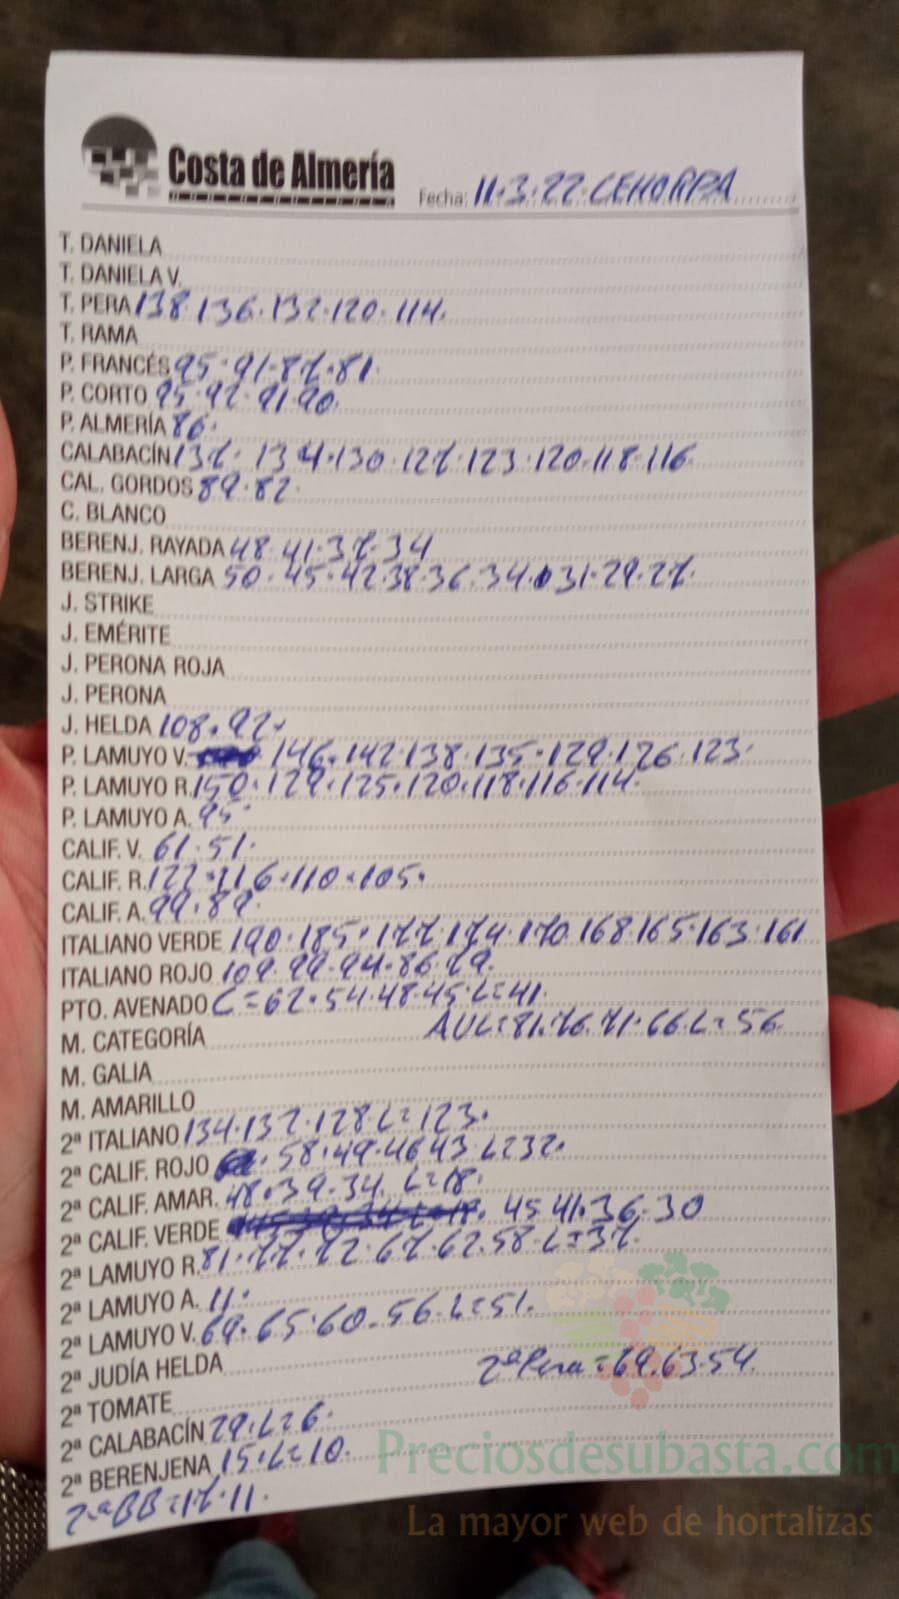 Costa de Almería
Fecha: 11·3·22 CEHORPA
T. DANIELA
T. DANIELA V.
T. PERA 138·136·132·120·114.
T. RAMA
P. FRANCÉS 95·91·87·81.
P. CORTO 95·92·91·90.
P. ALMERÍA 86.
CALABACÍN 137·134·130·127·123·120·118·116
CAL. GORDOS 89·82.
C. BLANCO
BERENJ. RAYADA 48·41·37·34
BERENJ. LARGA 50·45·42·38·36·34·31·29·27.
J. STRIKE
J. EMÉRITE
J. PERONA ROJA
J. PERONA
J. HELDA 108·92.
P. LAMUYO V. 146·142·138·135·129·126·123.
P. LAMUYO R. 150·129·125·120·118·116·114.
P. LAMUYO A. 95.
CALIF. V. 61·51.
CALIF. R. 122·116·110·105.
CALIF. A. 99·89.
ITALIANO VERDE 190·185·177·174·170·168·165·163·161
ITALIANO ROJO 109·99·94·86·79.
PTO. AVENADO C=62·54·48·45·L=41.
AUL=81·76·71·66·L=56.
M. CATEGORÍA
M. GALIA
M. AMARILLO
2ª ITALIANO 134·132·128·L=123.
2ª CALIF. ROJO 58·49·46·43·L=32.
2ª CALIF. AMAR. 48·39·34·L=18.
2ª CALIF. VERDE 45·41·36·30
2ª LAMUYO R. 81·77·72·67·62·58·L=37.
2ª LAMUYO A. 11.
2ª LAMUYO V. 69·65·60·56·L=51.
2ª JUDÍA HELDA
2ª Pera=69·63·54.
2ª TOMATE
2ª CALABACÍN 29·L=6.
2ª BERENJENA 15·L=10.
2ªBB=17·11.
Preciosdesubasta.com
La mayor web de hortalizas